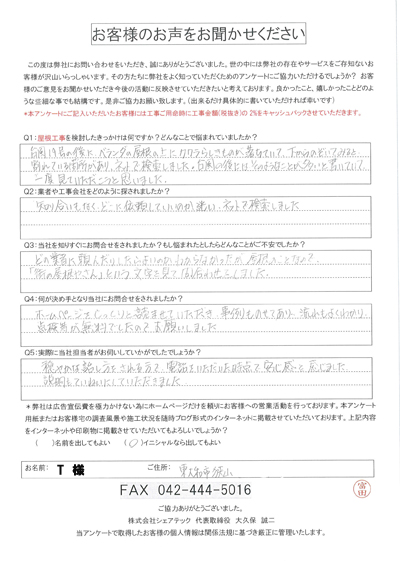 お客様のお声をお聞かせください
この度は弊社にお問い合わせをいただき、誠にありがとうございました。世の中には弊社の存在やサービスをご存知ないお
客様が沢山いらっしゃいます。その方たちに弊社をよく知っていただくためのアンケートにご協力いただけるでしょうか?お客
様のご意見をお聞かせいただき今後の活動に反映させていただきたいと考えております。良かったこと、嬉しかったことどのよ
うな些細な事でも結構です。是非ご協力お願い致します。(出来るだけ具体的に書いていただければ幸いです)
*本アンケートにご記入いただいたお客様には工事ご用命時に工事金額(税抜き)の2%をキャッシュバックさせていただきます。
Q1:屋根工事を検討したきっかけは何ですか?どんなことで悩まれていましたか?
台風19号の後に、ベランダの屋根の上に
一度見ていただこうと思いました。
Q2:業者や工事会社をどのように探されましたか?
知り合いもなく、どこに依頼していいのか迷い、ネットで検索しました
Q3:当社を知りすぐにお問合せをされましたか?もし悩まれたとしたらどんなことがご不安でしたか?
「街の屋根やさん」という文字を見て
Q4:何が決め手となり当社にお問合せをされましたか?
ホームページをじっくりと読ませていただき、事例ものせてあり、流れもよくわかり、
点検等が無料でしたのでお願いしました。
Q5:実際に当社担当者がお伺いしていかがでしたでしょうか?
穏やかな話し方をされる方で、電話をいただいた時点で安心感を感じました。
説明していねいにしていただきました。
*弊社は広告宣伝費を極力かけない為にホームページだけを頼りにお客様への営業活動を行っております。本アンケート
用紙またはお客様宅の調査風景や施工状況を随時ブログ形式のインターネットに掲載させていただいております。上記内容
をインターネットや印刷物に掲載させていただいてもよろしいでしょうか?
( )名前を出してもよい (○)イニシャルなら出してもよい
お名前: T 様 ご住所: 東大和市狭山
FAX 042-444-5016
富田
ご協力ありがとうございました。
株式会社シェアテック 代表取締役 大久保 誠二
当アンケートで取得したお客様の個人情報は関係法規に基づき厳正に管理いたします。